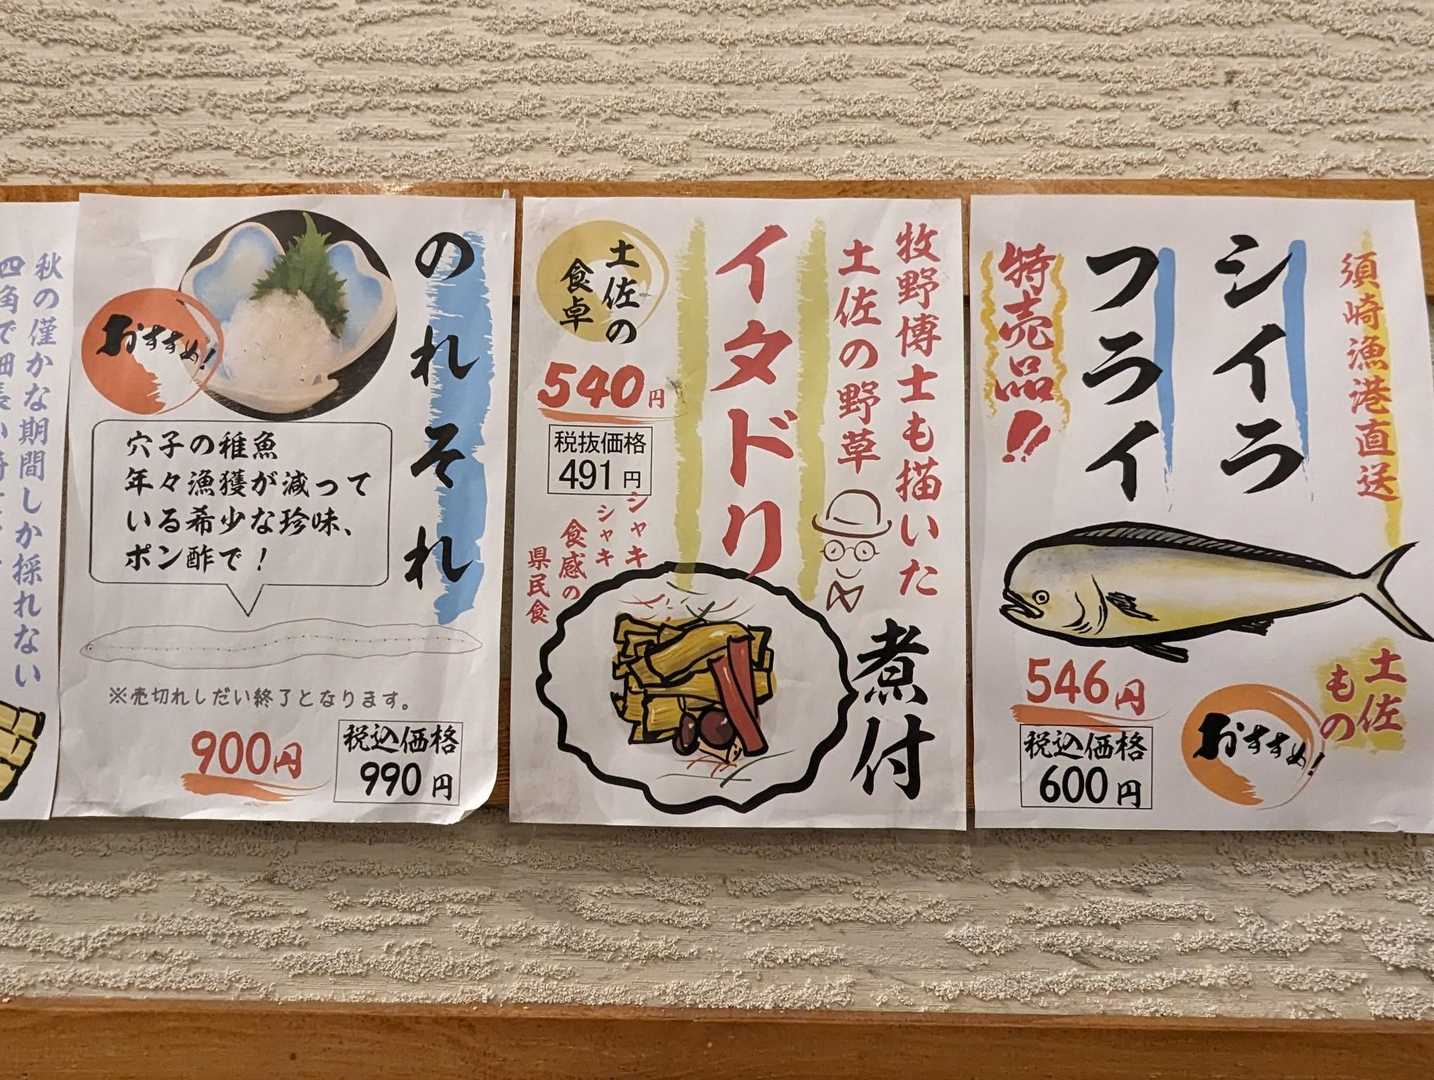 秋の僅かな期間しか採れない
のれそれ
おすすめ!
穴子の稚魚
年々漁獲が減って
いる希少な珍味、
ポン酢で!
※売切れしだい終了となります。
900円
税込価格
990円
牧野博士も描いた
土佐の野草
イタドリ
煮付
土佐の
食卓
540円
税抜価格
491円
シャキ
シャキ
食感の
県民食
須崎漁港直送
シイラ
フライ
特売品!!
546円
税込価格
600円
おすすめ!
土佐
もの